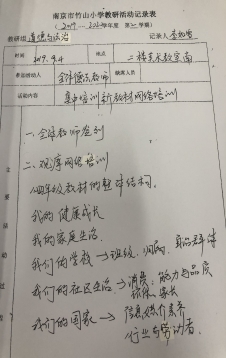 南京市竹山小学教研活动记录表
(2019—2020年度 第一学期)
教研组 道德与法治 记录人
时间 2019.9.4 地点 二楼美术教室
参加活动人 全体德法教师 缺席人员
活动内容 集中培训新教材网络培训
一、全体教师签到
二、观序网络培训
四年级教材的整体结构。
我的健康成长
我的家庭生活
我们的学校→班级、
我们的社区生活→消费,能力与品质
我们的国家→信息,媒介素养
行业与劳动者。
主
要
活
动
过